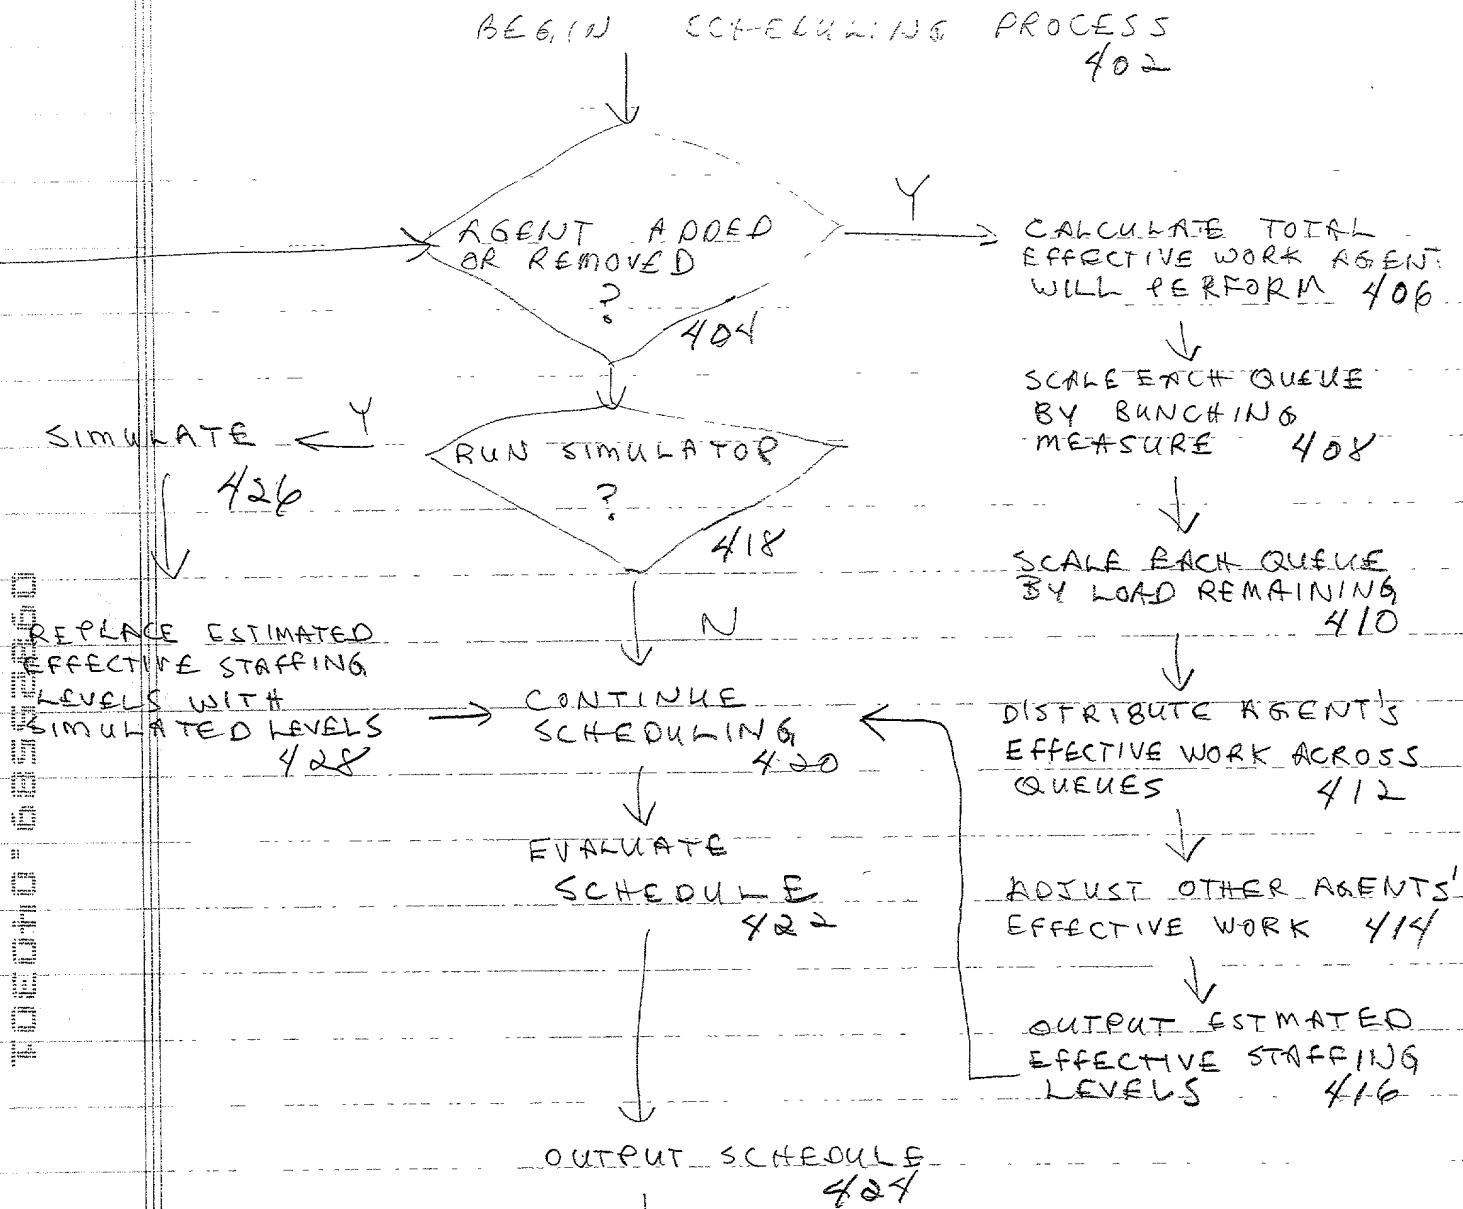 BEGIN SCHEDULING PROCESS
402
AGENT ADDED
OR REMOVED
?
404
Y
CALCULATE TOTAL
EFFECTIVE WORK AGENT
WILL PERFORM 406
SCALE EACH QUEUE
BY BUNCHING
MEASURE 408
SCALE EACH QUEUE
BY LOAD REMAINING
410
DISTRIBUTE AGENT'S
EFFECTIVE WORK ACROSS
QUEUES 412
ADJUST OTHER AGENTS'
EFFECTIVE WORK 414
OUTPUT ESTMATED
EFFECTIVE STAFFING
LEVELS 416
RUN SIMULATOR
?
418
Y
SIMULATE
426
REPLACE ESTIMATED
EFFECTIVE STAFFING
LEVELS WITH
SIMULATED LEVELS
428
N
CONTINUE
SCHEDULING
420
EVALUATE
SCHEDULE
422
OUTPUT SCHEDULE
424